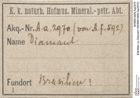 K. k. naturh. Hofmus. Mineral.-petr. Abt.
Akq.-Nr. A.a. 2970 (von d. f. 595)
Name Diamant
Fundort Brasilien?